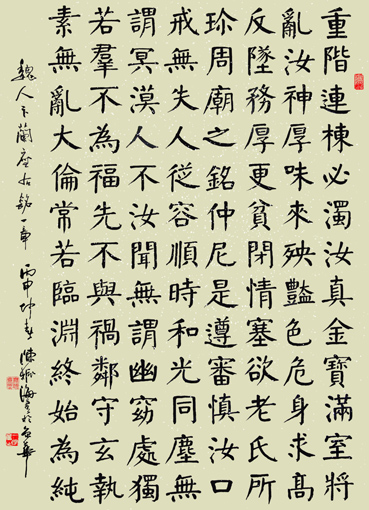 重階連棟必濁汝真金寶滿室將
亂汝神厚味來殃豔色危身求高
反墜務厚更貧閉情塞欲老氏所
珎周廟之銘仲尼是遵審慎汝口
戒無失人從容順時和光同塵無
謂冥漠人不汝聞無謂幽窈處獨
若羣不為福先不與禍鄰守玄執
素無亂大倫常若臨淵終始為純
魏人卞蘭座右銘一章 丙申